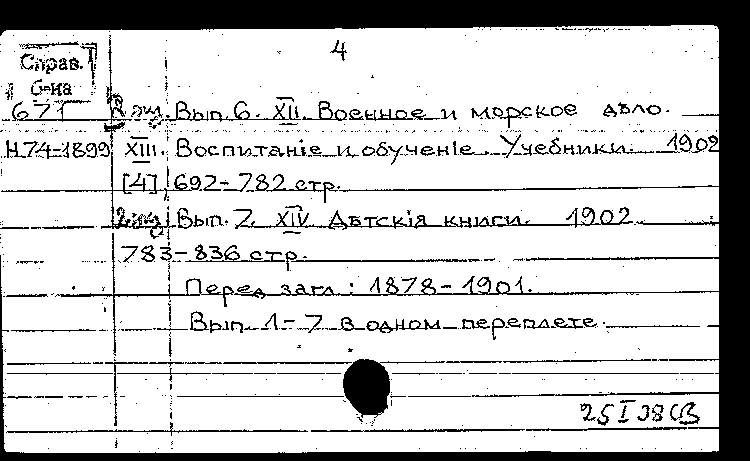 4
Справ.
б-ка
671 2 экз. Вып. 6. XII. Военное и морское дѣло.
Н.74-1899 XIII. Воспитаніе и обученіе. Учебники. 1902
[4], 692-782 стр.
2 экз. Вып. 7. XIV Дѣтскія книги. 1902.
783-836 стр.
Перед загл: 1878-1901.
Вып. 1-7 в одном переплете.
25 I 38